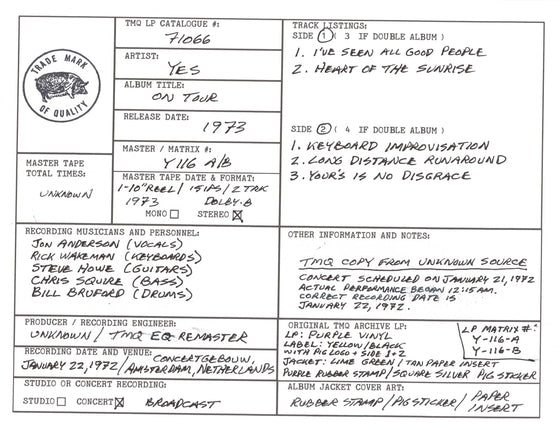 TRADE MARK
OF QUALITY
TMQ LP CATALOGUE #:
71066
ARTIST:
YES
ALBUM TITLE:
ON TOUR
RELEASE DATE:
1973
MASTER / MATRIX #:
Y116 A/B
MASTER TAPE
TOTAL TIMES:
UNKNOWN
MASTER TAPE DATE & FORMAT:
1-10" REEL / 15 IPS / 2 TRK
1973 DOLBY-B
MONO STEREO
TRACK LISTINGS:
SIDE 1 ( 3 IF DOUBLE ALBUM )
1. I'VE SEEN ALL GOOD PEOPLE
2. HEART OF THE SUNRISE
SIDE 2 ( 4 IF DOUBLE ALBUM )
1. KEYBOARD IMPROVISATION
2. LONG DISTANCE RUNAROUND
3. YOUR'S IS NO DISGRACE
RECORDING MUSICIANS AND PERSONNEL:
JON ANDERSON (VOCALS)
RICK WAKEMAN (KEYBOARDS)
STEVE HOWE (GUITARS)
CHRIS SQUIRE (BASS)
BILL BRUFORD (DRUMS)
OTHER INFORMATION AND NOTES:
TMQ COPY FROM UNKNOWN SOURCE
CONCERT SCHEDULED ON JANUARY 21, 1972
ACTUAL PERFORMANCE BEGAN 12:15 AM.
CORRECT RECORDING DATE IS
JANUARY 22, 1972.
PRODUCER / RECORDING ENGINEER:
UNKNOWN / TMQ EQ REMASTER
RECORDING DATE AND VENUE:
CONCERTGEBOUW,
JANUARY 22, 1972 / AMSTERDAM, NETHERLANDS
STUDIO OR CONCERT RECORDING:
STUDIO CONCERT BROADCAST
ORIGINAL TMQ ARCHIVE LP:
LP: PURPLE VINYL
LABEL: YELLOW/BLACK
WITH PIG LOGO + SIDE 1+2
JACKET: LIME GREEN / TAN PAPER INSERT
PURPLE RUBBER STAMP / SQUARE SILVER PIG STICKER
LP MATRIX #:
Y-116-A
Y-116-B
ALBUM JACKET COVER ART:
RUBBER STAMP / PIG STICKER / PAPER
INSERT